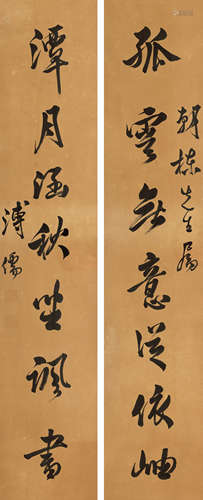 孤雲無意從依岫
棟先生屬
潭月涵秋坐諷書
溥儒